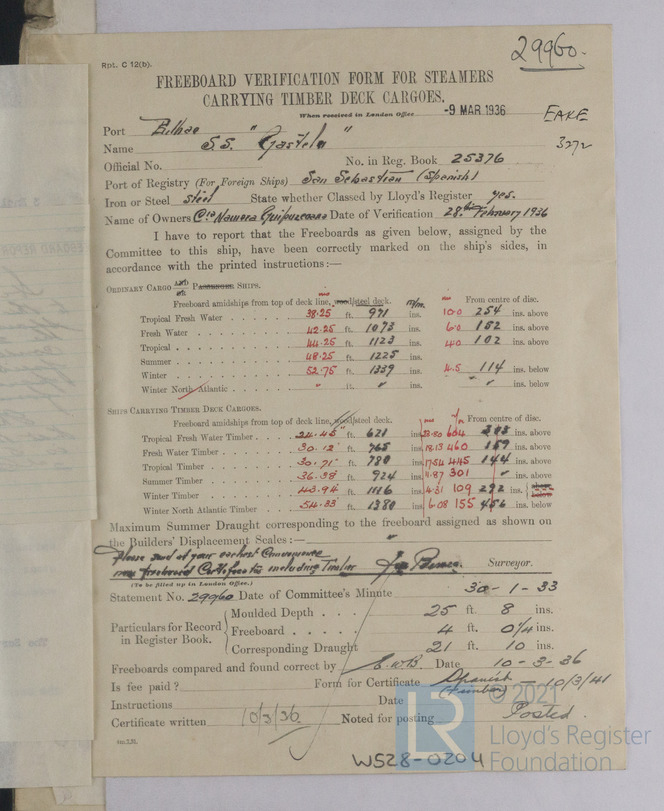 29960.
Rpt. C 12(b).
FREEBOARD VERIFICATION FORM FOR STEAMERS
CARRYING TIMBER DECK CARGOES.
When received in London Office -9 MAR 1936
Port Bilbao
Name S.S. "Gastelu"
3272
Official No. No. in Reg. Book 25376
Port of Registry (For Foreign Ships) San Sebastian (Spanish)
Iron or Steel Steel State whether Classed by Lloyd's Register yes.
Name of Owners Cia Naviera Guipuzcoana Date of Verification 28th February 1936
I have to report that the Freeboards as given below, assigned by the
Committee to this ship, have been correctly marked on the ship's sides, in
accordance with the printed instructions:—
ORDINARY CARGO AND OR PASSENGER SHIPS.
Freeboard amidships from top of deck line, wood/steel deck. m/m. From centre of disc.
Tropical Fresh Water 38.25 ft. 971 ins. 10.0 254 ins. above
Fresh Water 42.25 ft. 1073 ins. 6.0 152 ins. above
Tropical 44.25 ft. 1123 ins. 4.0 102 ins. above
Summer 48.25 ft. 1225 ins.
Winter 52.75 ft. 1339 ins. 4.5 114 ins. below
Winter North Atlantic " ft. " ins. " ins. below
SHIPS CARRYING TIMBER DECK CARGOES.
Freeboard amidships from top of deck line, wood/steel deck. From centre of disc.
Tropical Fresh Water Timber 24.45 ft. 621 ins. 23.80 604 ins. above
Fresh Water Timber 30.12 ft. 765 ins. 18.13 460 159 ins. above
Tropical Timber 30.71 ft. 780 ins. 17.54 445 144 ins. above
Summer Timber 36.38 ft. 924 ins. 11.87 301 ins. above
Winter Timber 43.94 ft. 1116 ins. 4.31 109 292 ins. above below
Winter North Atlantic Timber 54.33 ft. 1380 ins. 6.08 155 456 ins. below
Maximum Summer Draught corresponding to the freeboard assigned as shown on
the Builders' Displacement Scales:— "
Please send at your earliest Convenience
new freeboard Certificates including Timber Surveyor.
(To be filled up in London Office.)
Statement No. 29960 Date of Committee's Minute 30-1-33
Particulars for Record in Register Book.
Moulded Depth 25 ft. 8 ins.
Freeboard 4 ft. 0 1/4 ins.
Corresponding Draught 21 ft. 10 ins.
Freeboards compared and found correct by E.W.B. Date 10-3-36
Is fee paid? Form for Certificate Spanish (Timber) — 10/3/41
Instructions Date
Certificate written 10/3/36 Noted for posting Posted.
© 2021
Lloyd's Register
Foundation
LR
W528-0204